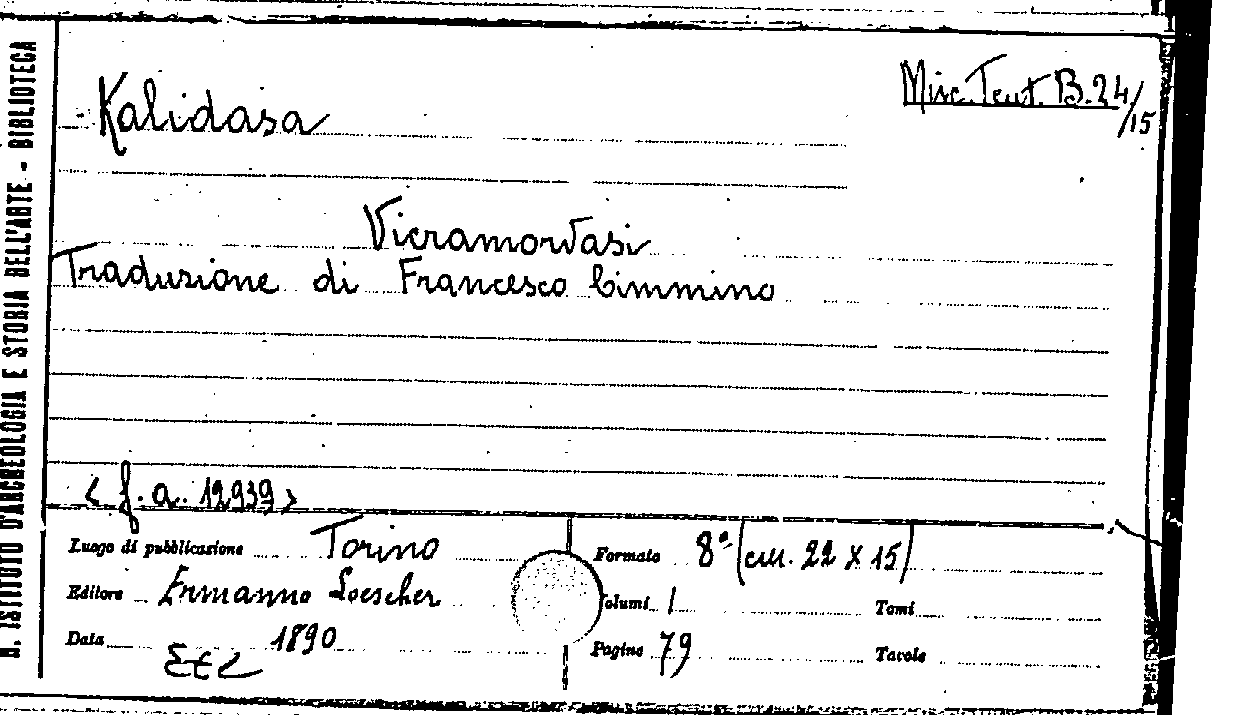 R. ISTITUTO D'ARCHEOLOGIA E STORIA DELL'ARTE - BIBLIOTECA
Misc. Teat. B. 24/15
Kalidasa
Vicramorvasi
Traduzione di Francesco Cimmino
<f. a. 12939>
Luogo di pubblicazione Torino
Editore Ermanno Loescher
Data 1890
Formato 8° (cm. 22 x 15)
Volumi 1 Tomi
Pagine 79 Tavole